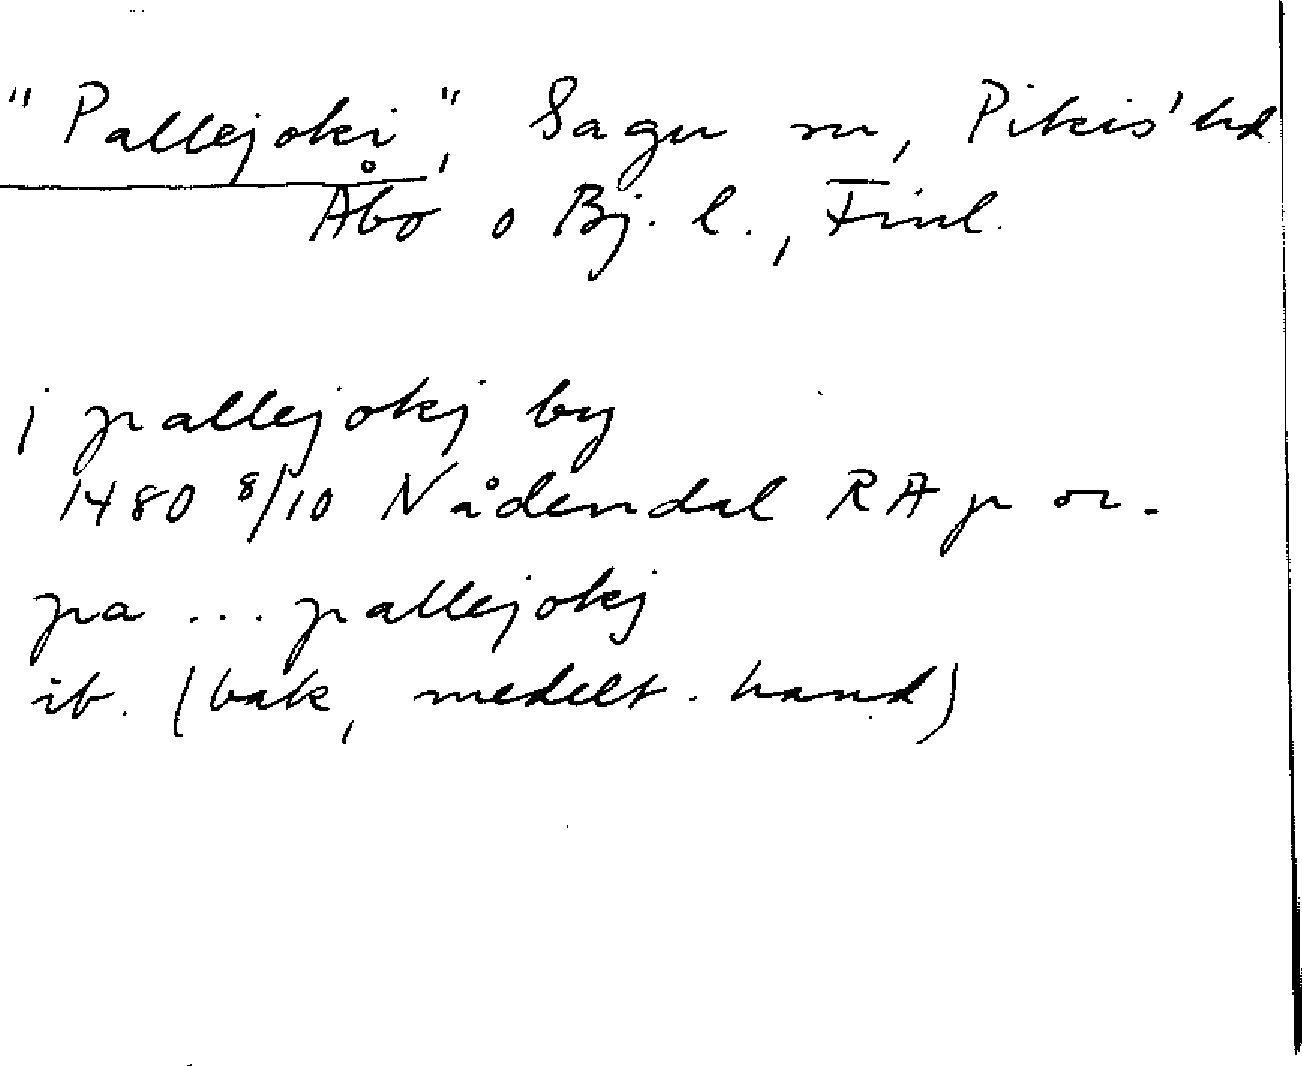 "Pallejoki", Sagu sn, Pikis' hd
Åbo o Bj. l., Finl.
j pallejokj by
1480 8/10 Nådendal RAp or.
pa ... pallejokj
ib. (bak, medelt. hand)